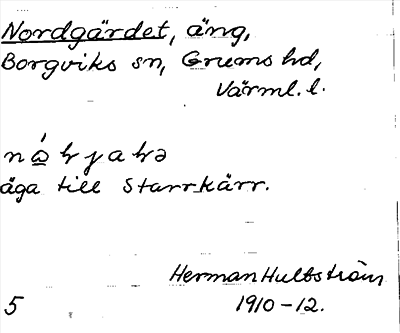 Nordgärdet, äng,
Borgviks sn, Grums hd,
Värml. l.
äga till Starrkärr.
Herman Hultström
1910-12.
5